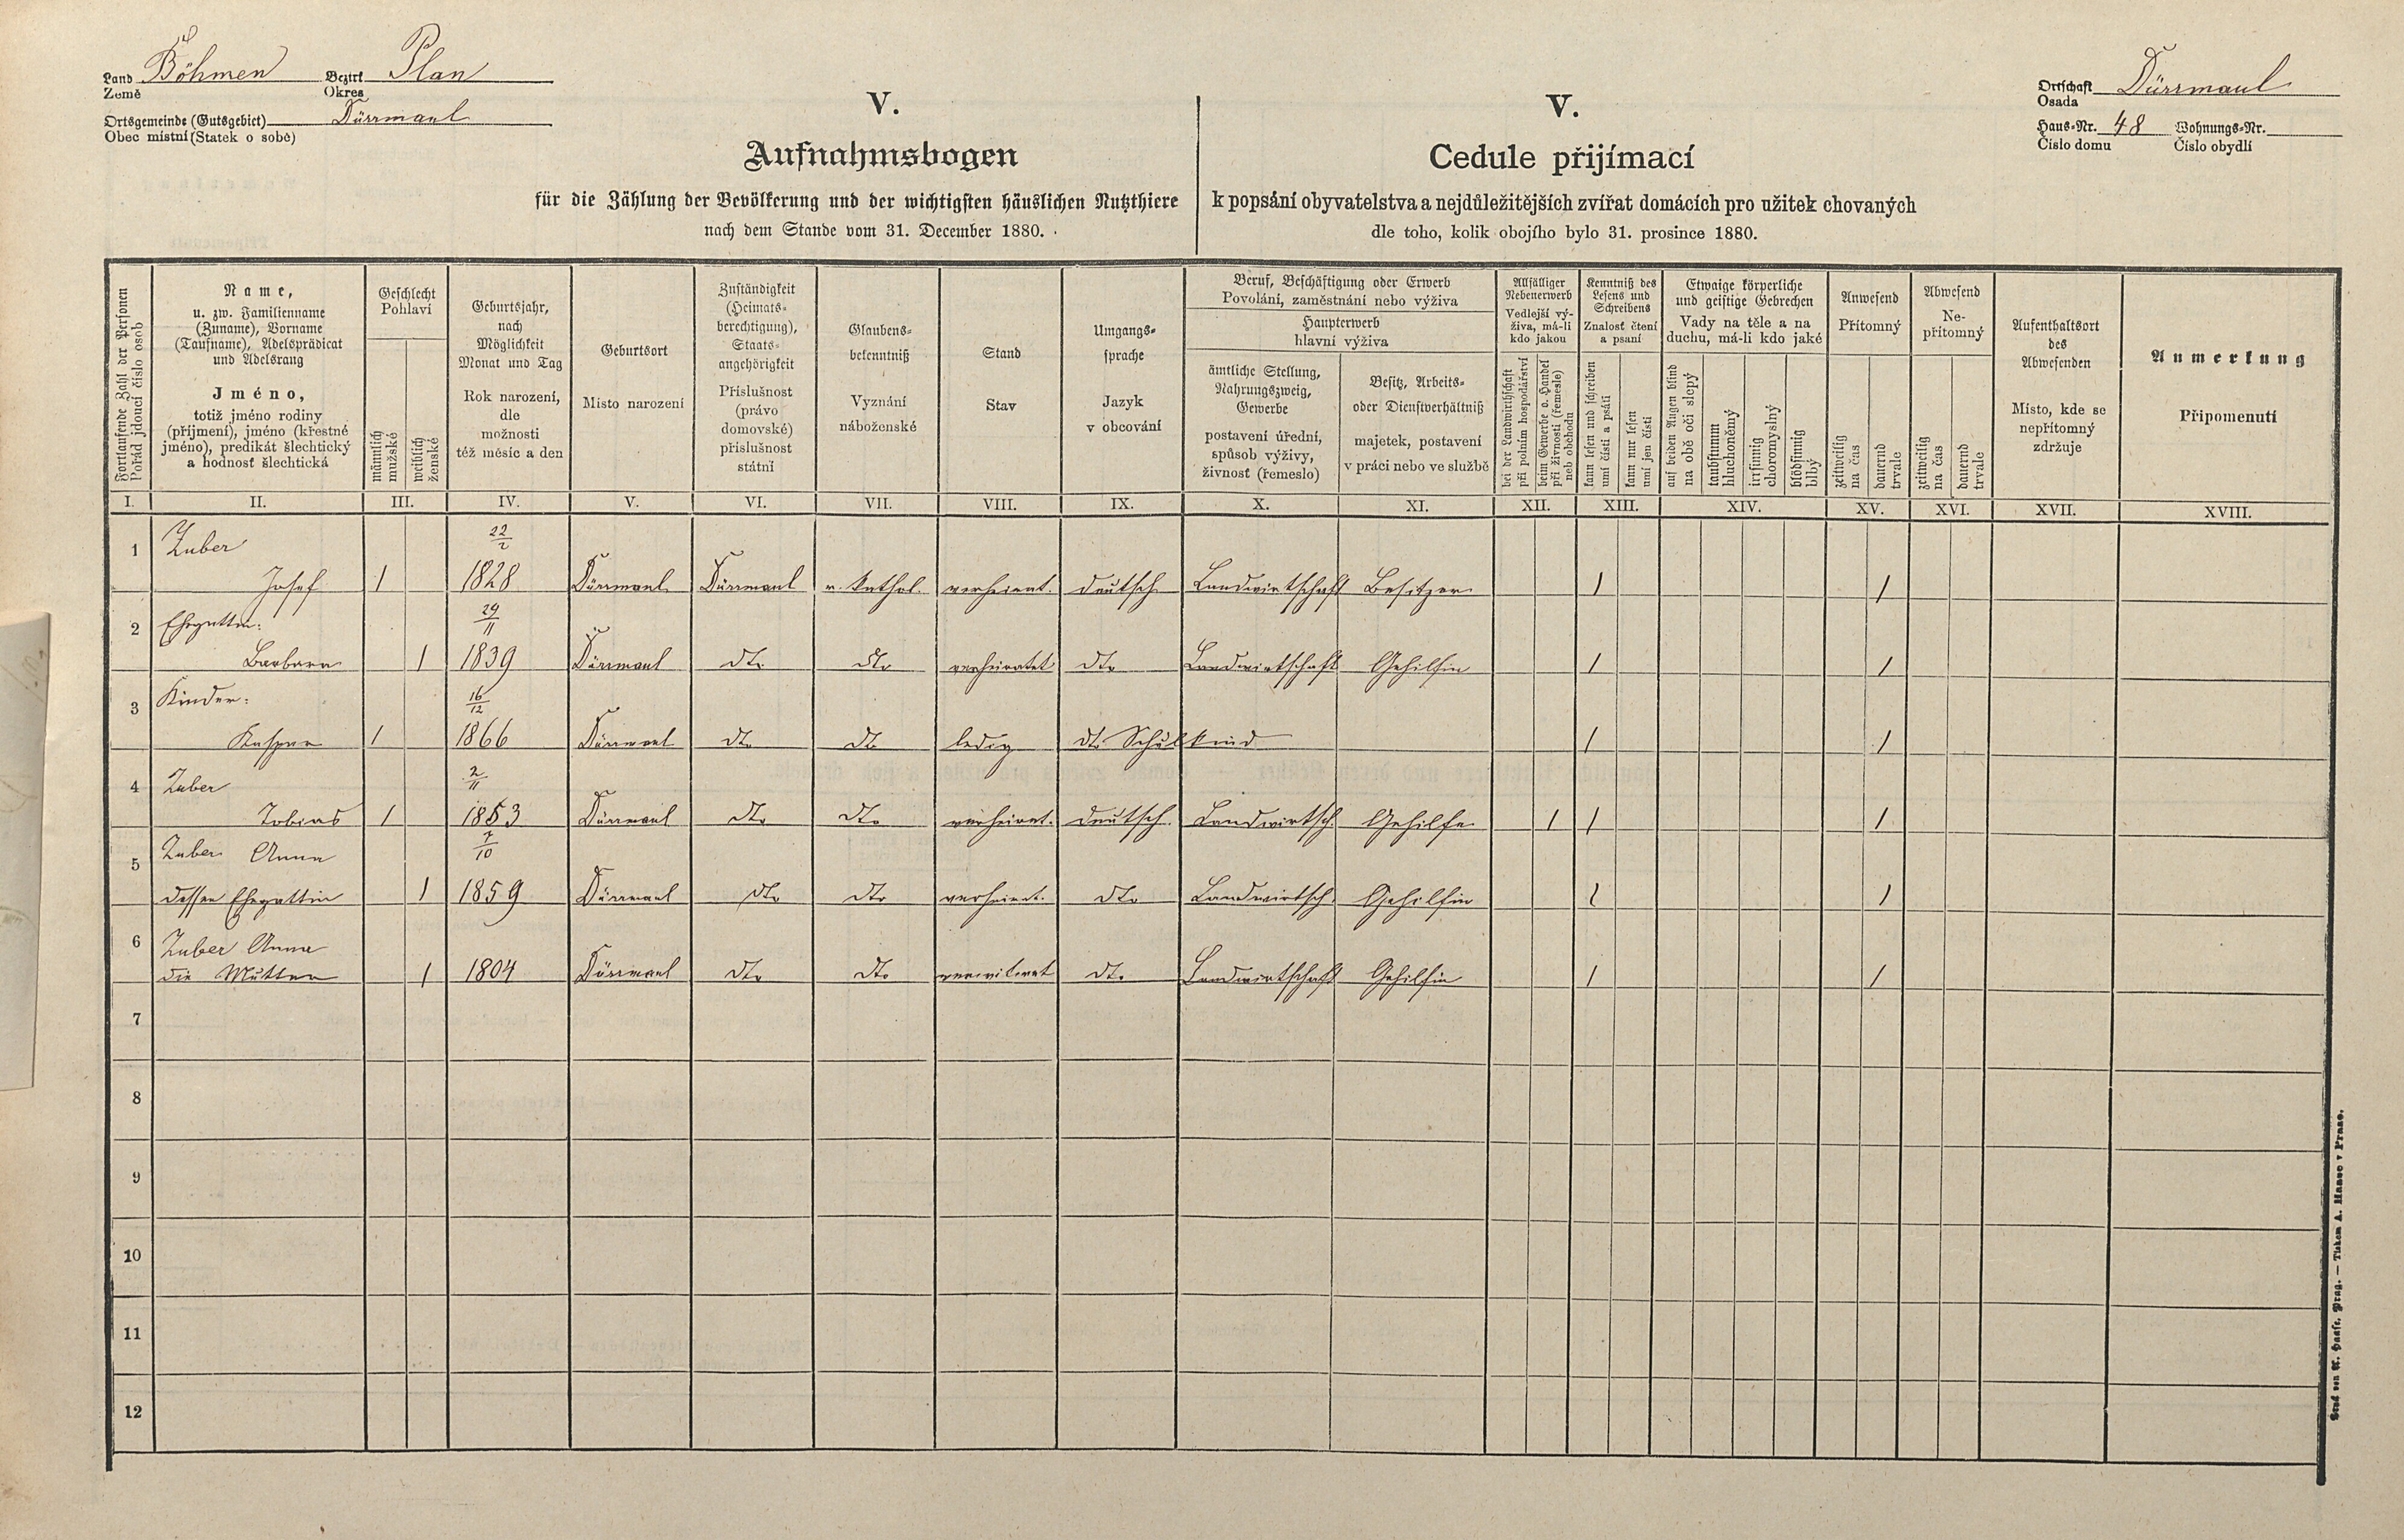 Land Böhmen Bezirk Plan
Země Okres
Ortsgemeinde (Gutsgebiet) Dürrmaul
Obec místní (Statek o sobě)
Ortschaft Dürrmaul
Osada
Haus-Nr. 48 Wohnungs-Nr.
Číslo domu Číslo obydlí
V.
Aufnahmsbogen
für die Zählung der Bevölkerung und der wichtigsten häuslichen Nutzthiere
nach dem Stande vom 31. December 1880.
V.
Cedule přijímací
k popsání obyvatelstva a nejdůležitějších zvířat domácích pro užitek chovaných
dle toho, kolik obojího bylo 31. prosince 1880.
Fortlaufende Zahl der Personen
Pořád jdoucí číslo osob
Name,
u. zw. Familienname
(Zuname), Vorname
(Taufname), Adelsprädicat
und Adelsrang
Jméno,
totiž jméno rodiny
(příjmení), jméno (křestné
jméno), predikát šlechtický
a hodnosť šlechtická
Geschlecht
Pohlaví
männlich
mužské
weiblich
ženské
Geburtsjahr,
nach
Möglichkeit
Monat und Tag
Rok narození,
dle
možnosti
též měsíc a den
Geburtsort
Místo narození
Zuständigkeit
(Heimats-
berechtigung),
Staats-
angehörigkeit
Příslušnost
(právo
domovské)
příslušnost
státní
Glaubens-
bekenntniß
Vyznání
náboženské
Stand
Stav
Umgangs-
sprache
Jazyk
v obcování
Beruf, Beschäftigung oder Erwerb
Povolání, zaměstnání nebo výživa
Haupterwerb
hlavní výživa
ämtliche Stellung,
Nahrungszweig,
Gewerbe
postavení úřední,
spůsob výživy,
živnosť (řemeslo)
Besitz, Arbeits-
oder Dienstverhältniß
majetek, postavení
v práci nebo ve službě
Allfälliger
Nebenerwerb
Vedlejší vý-
živa, má-li
kdo jakou
bei der Landwirthschaft
při polním hospodářství
beim Gewerbe o. Handel
při živnosti (řemesle)
neb obchodu
Kenntniß des
Lesens und
Schreibens
Znalosť čtení
a psaní
kann lesen und schreiben
umí čísti a psáti
kann nur lesen
umí jen čísti
Etwaige körperliche
und geistige Gebrechen
Vady na těle a na
duchu, má-li kdo jaké
auf beiden Augen blind
na obě oči slepý
taubstumm
hluchoněmý
irrsinnig
choromyslný
blödsinnig
blbý
Anwesend
Přítomný
zeitweilig
na čas
dauernd
trvale
Abwesend
Ne-
přítomný
zeitweilig
na čas
dauernd
trvale
Aufenthaltsort
des
Abwesenden
Místo, kde se
nepřítomný
zdržuje
Anmerkung
Připomenutí
I. II. III. IV. V. VI. VII. VIII. IX. X. XI. XII. XIII. XIV. XV. XVI. XVII. XVIII.
1 Zuber 22/2
Josef 1 1828 Dürrmaul Dürrmaul r. kathol. verheirat. deutsch Landwirtschaft Besitzer 1 1
2 Ehegattin: 29/11
Barbara 1 1839 Dürrmaul dto dto verheiratet dto Landwirtschaft Gehilfin 1 1
3 Kinder: 16/12
Kaspar 1 1866 Dürrmaul dto dto ledig dto Schulkind 1 1
4 Zuber 2/11
Tobias 1 1853 Dürrmaul dto dto verheirat. deutsch Landwirtsch. Gehilfe 1 1 1
5 Zuber Anna 7/10
dessen Ehegattin 1 1859 Dürrmaul dto dto verheirat. dto Landwirtsch. Gehilfin 1 1
6 Zuber Anna
die Mutter 1 1804 Dürrmaul dto dto verwitwet dto Landwirtschaft Gehilfin 1 1
7
8
9
10
11
12
Druck von A. Haase, Prag. — Tiskem A. Haase v Praze.